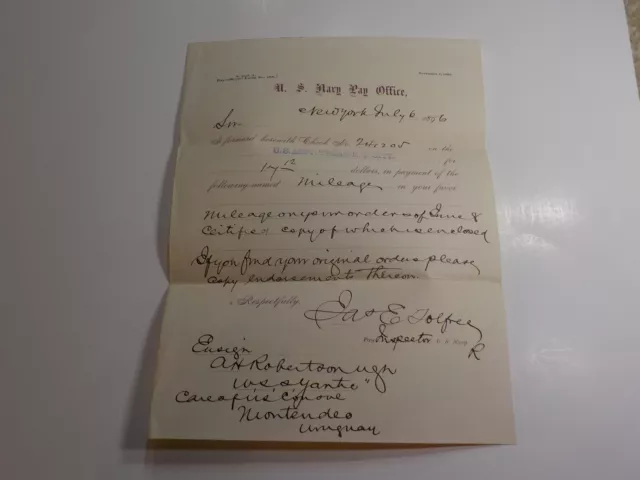 U. S. Navy Pay Office,
New York July 6, 1896
Sir
I forward herewith Check No. 241205 on the
for
dollars, in payment of the
following named Mileage in your favor
Mileage on your orders of June 8
Certified copy of which is enclosed
If you find your original orders please
copy endorsement thereon.
Respectfully,
Jas E Tolfree
Pay Inspector U. S. Navy
Ensign
A H Robertson USN
U.S.S. Yantic"
Care of U.S. Consul
Montevideo
Uruguay